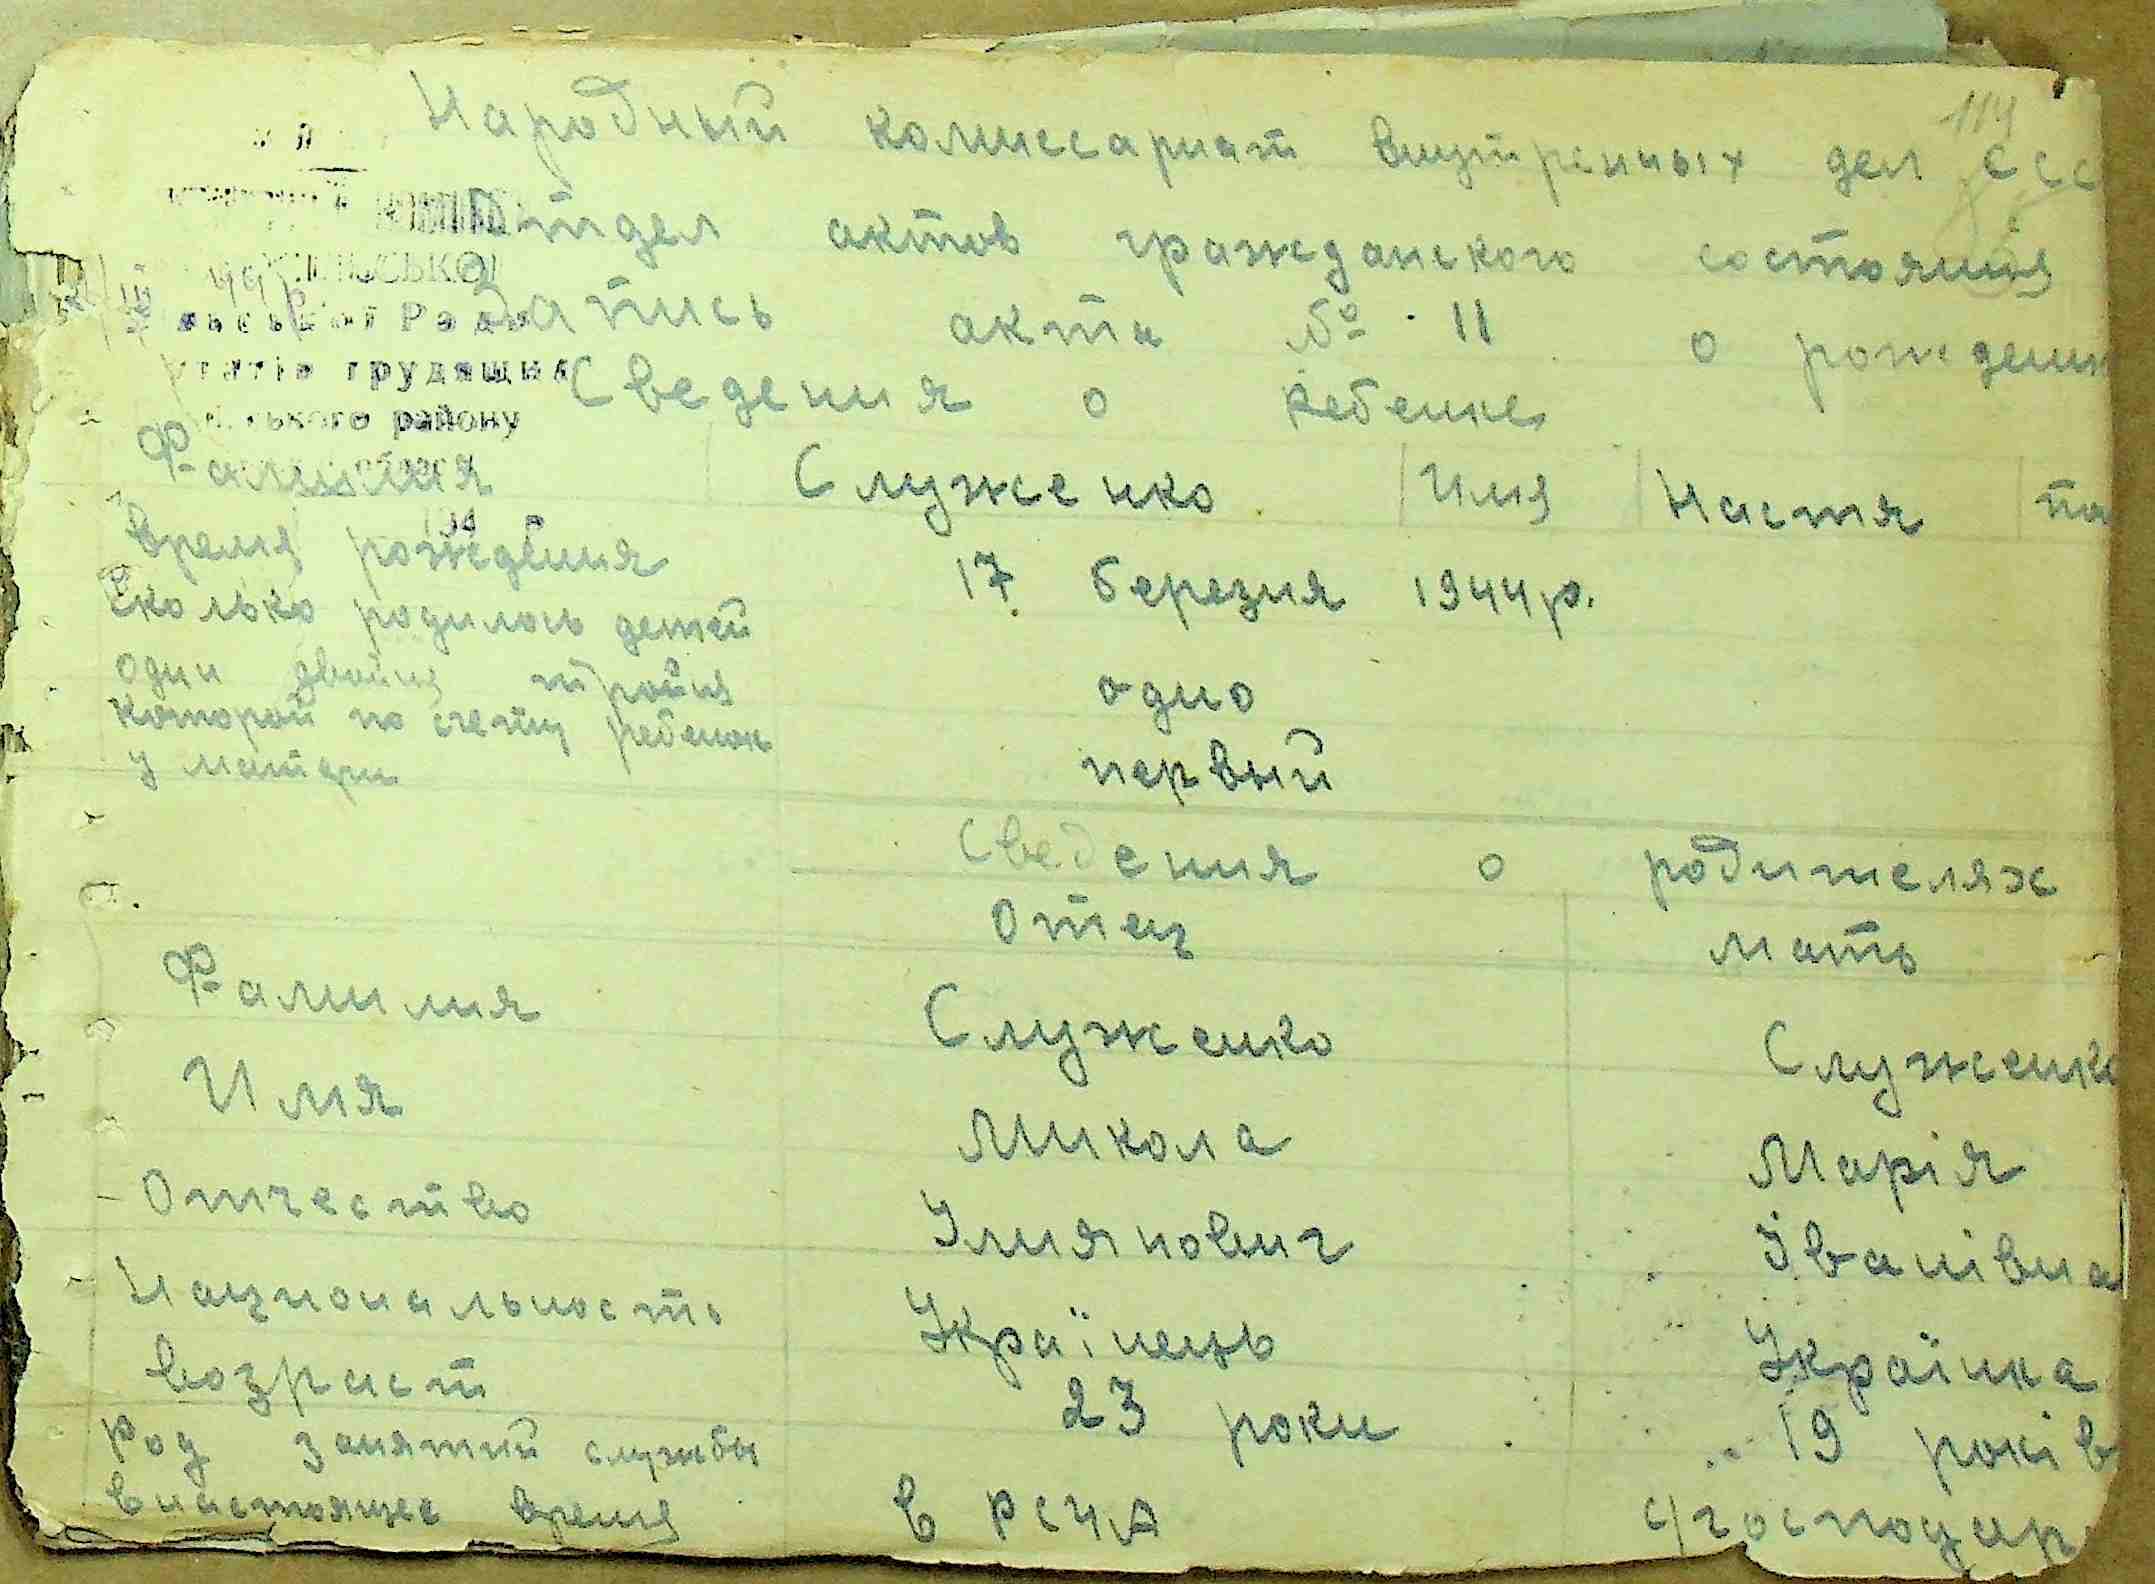 114
Народный комиссариат внутренных дел ССС
Отдел актов гражданского состояния
Запись акта № 11 о рождении
Сведения о ребенке
трудящих
району
Фамилия Служенко Имя Настя
Время рождения 17 березня 1944 р.
Сколько родилось детей
один двойня тройня одно
которой по счету ребенок
у матери первый
Сведения о родителях
Отец мать
Фамилия Служенко Служенко
Имя Микола Марія
Отчество Улиянович Іванівна
Национальность Українець Українка
возраст 23 роки 19 років
Род занятий службы
в настоящее время в РСЧА с/господар